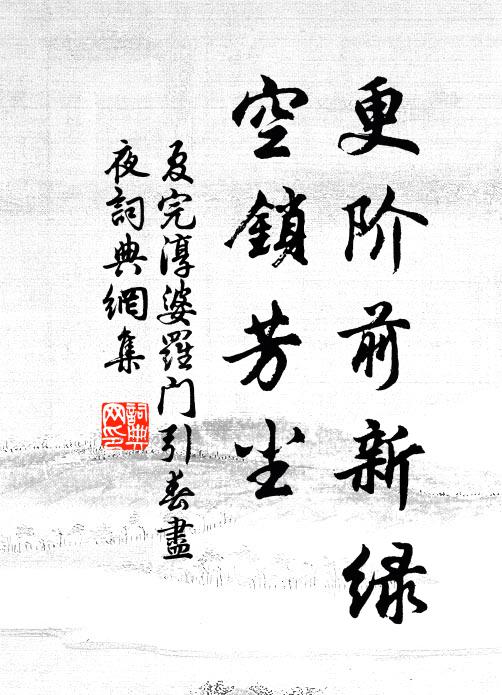 更阶前新緑
空鎖芳尘
夏完淳婆羅门引春盡
夜詞典網集
詞典
网印